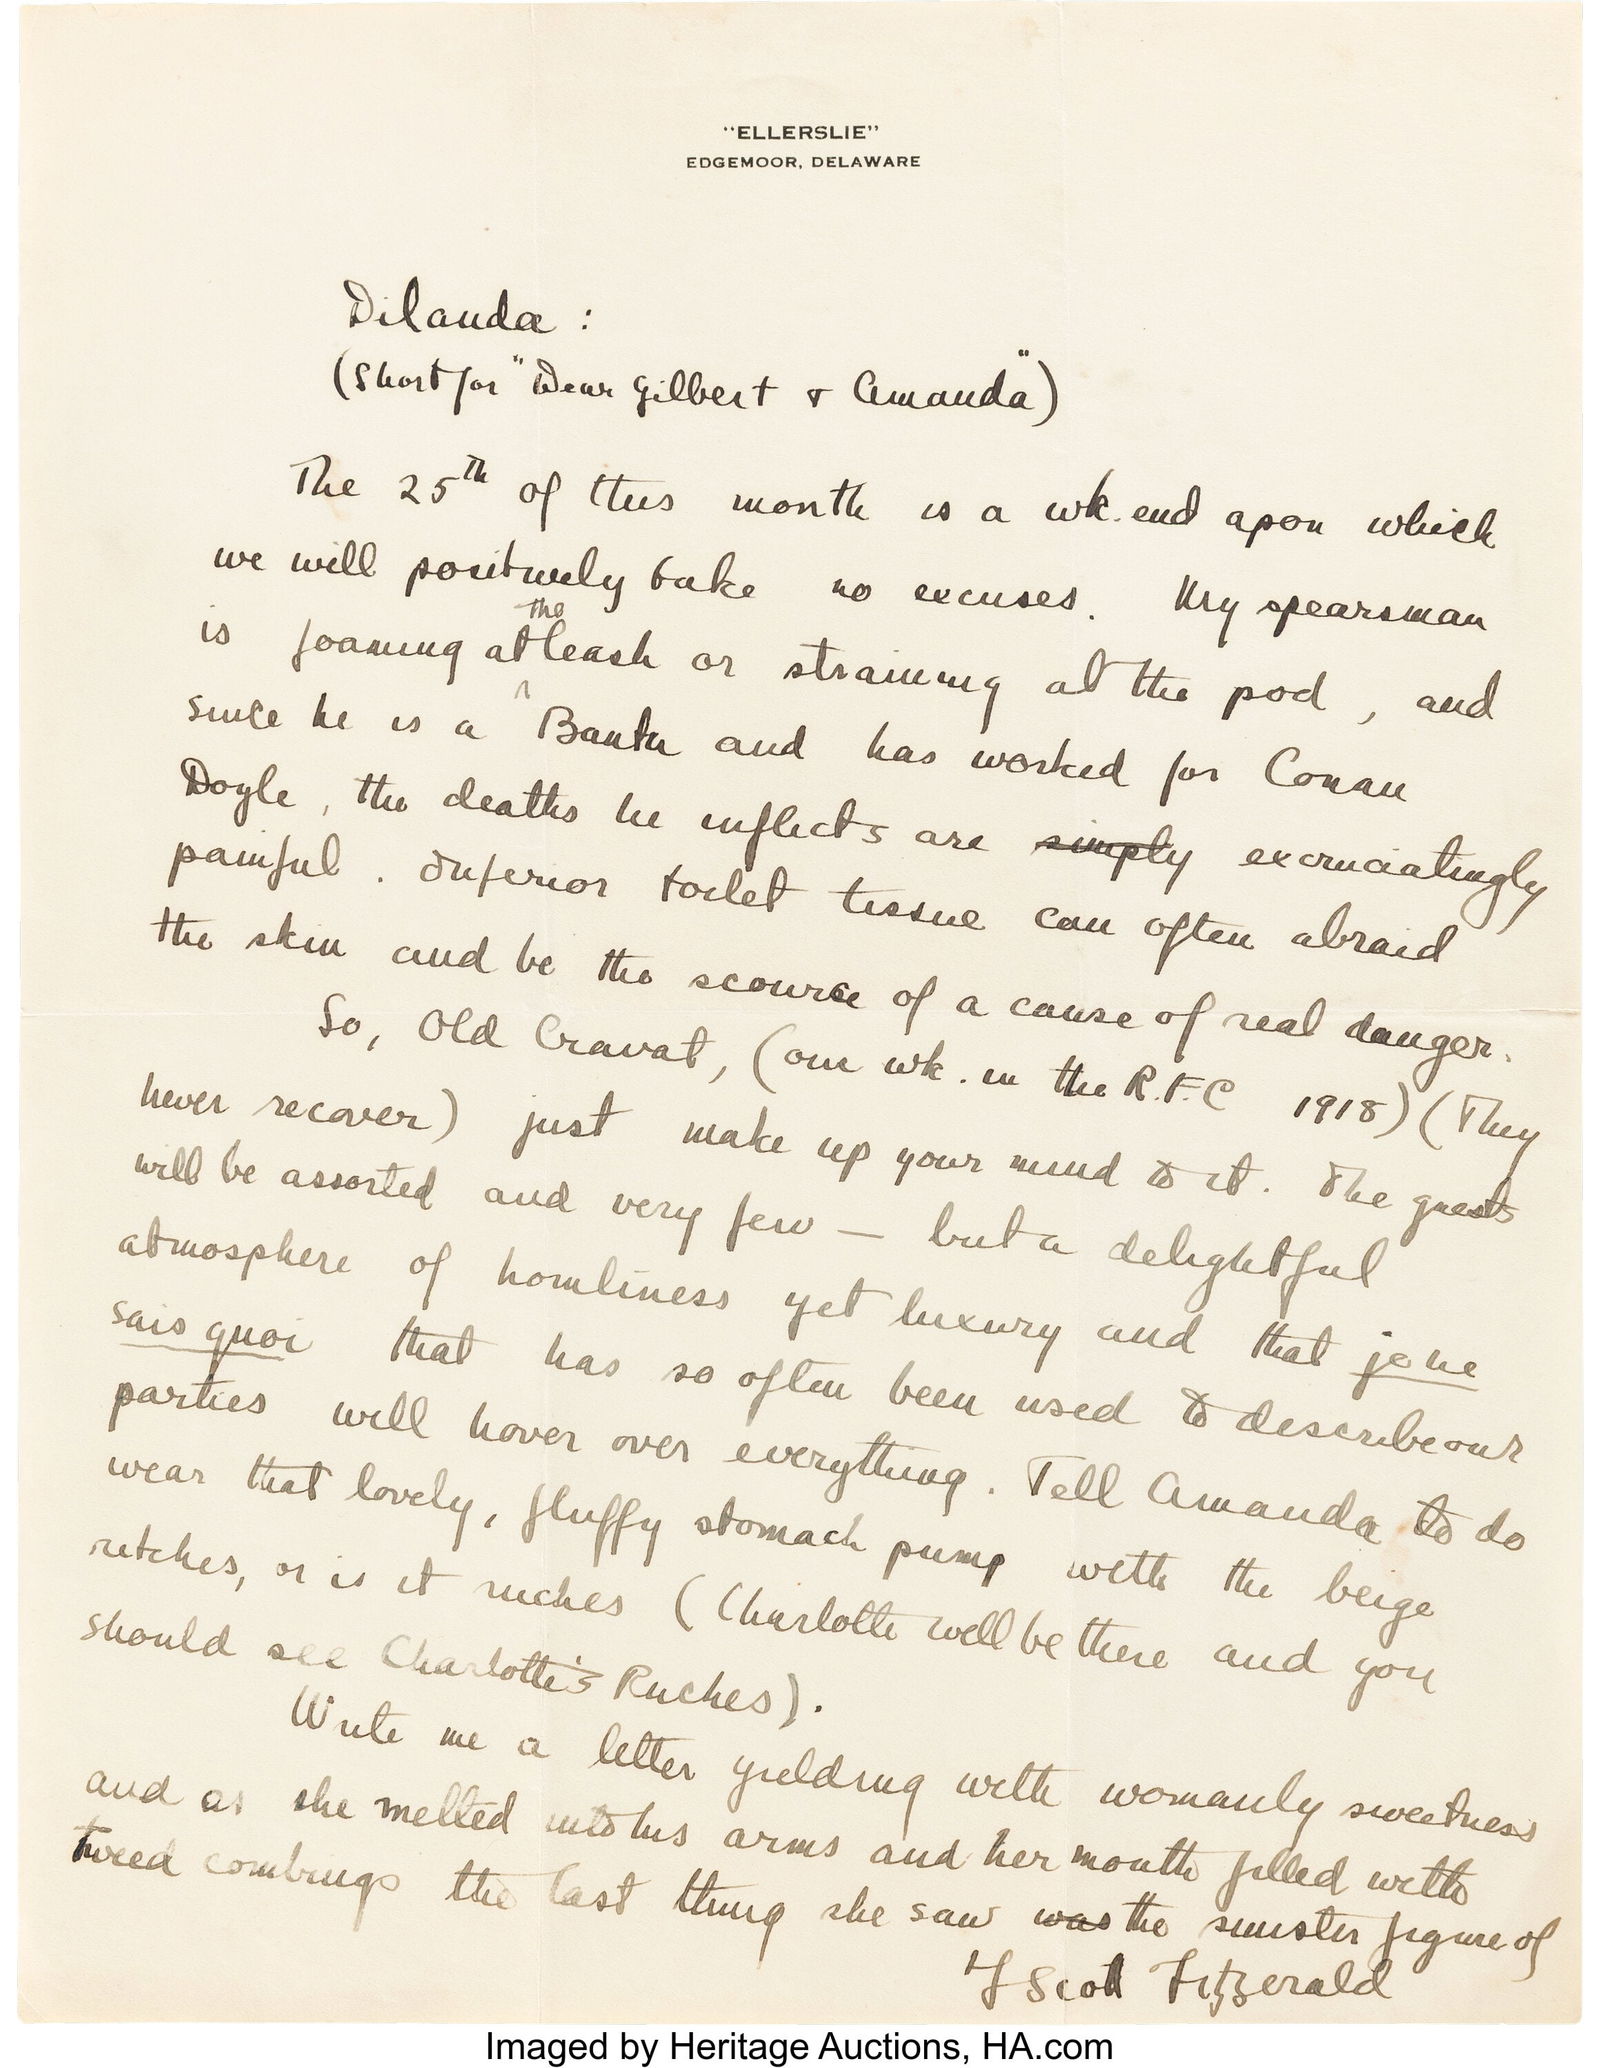 "ELLERSLIE"
EDGEMOOR, DELAWARE
Dilanda :
(Short for "Dear Gilbert + Amanda")
The 25th of this month is a wk. end apon which
we will positively take no excuses. My spearsman
is foaming at the leash or straining at the pod, and
since he is a Bantu and has worked for Conan
Doyle, the deaths he inflicts are simply excruciatingly
painful. Inferior toilet tissue can often abraid
the skin and be the scource of a cause of real danger.
So, Old Cravat, (our wk. in the R.F.C 1918) (They
never recover) just make up your mind to it. The guests
will be assorted and very few — but a delightful
atmosphere of homliness yet luxury and that je ne
sais quoi that has so often been used to describe our
parties will hover over everything. Tell Amanda to do
wear that lovely, fluffy stomach pump with the beige
retches, or is it ruches (Charlotte will be there and you
should see Charlotte's Ruches).
Write me a letter yielding with womanly sweetness
and as she melted into his arms and her mouth filled with
tweed combings the last thing she saw was the sinister figure of
F Scott Fitzgerald
Imaged by Heritage Auctions, HA.com